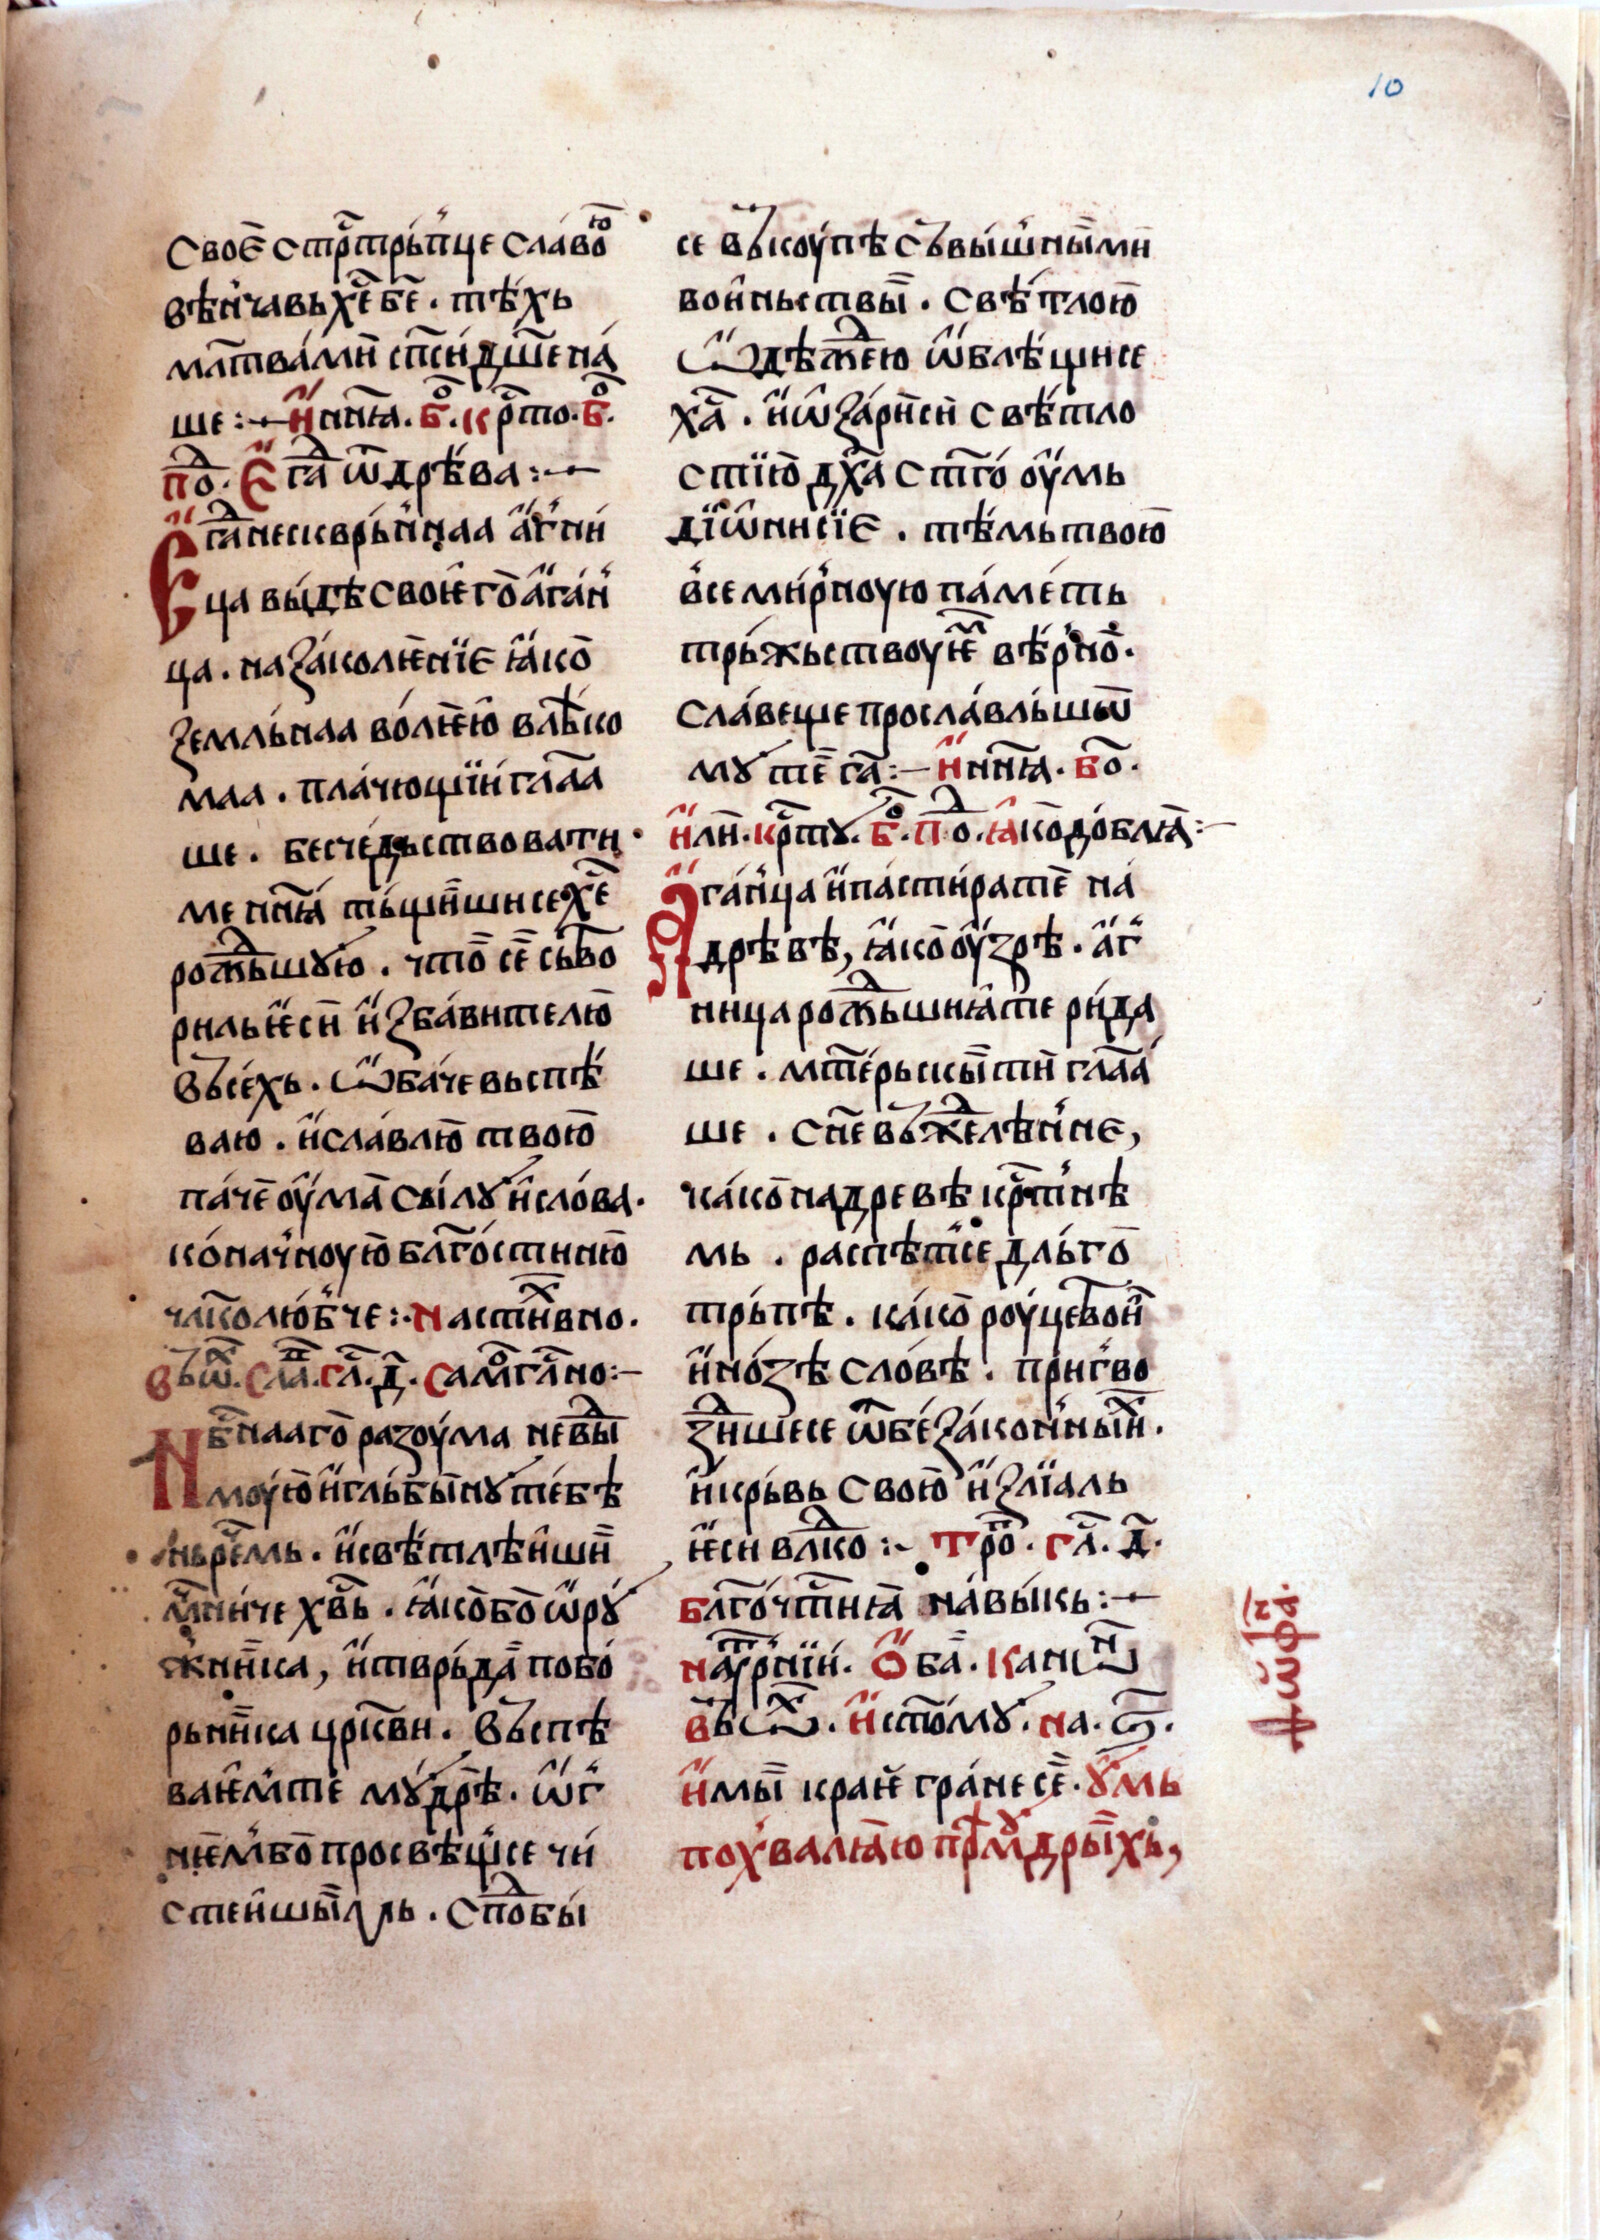 10
своѐ стрⷭ҇трьпце славо́ю
вѣнчавь хе҃ бе҃. тѣ́хь
мл҃тва́ми сп҃си дш҃е на́
ше :— И ннꙗ҃. б҃о. крⷭ҇то. б҃о.
поⷣ. Єгⷣа ѿ дрѣ́ва :—
Єгⷣа нескврь́ннаа а҆́гни
ца ви́дѣ своѥго̀ а҆́ган
ца. на закол꙯ѥнїе ꙗ҆́ко
земльнаа во́лѥю влⷣко
маа. пла́чющїи гл҃аа
ше. бесче́дьствовати
ме ннꙗ҃ тьщи́ши се хе҃
рожⷣьшꙋю. что̀ сѐ сьтво
риль ѥси и҆збавителю
вьсѣ́хь. ѡ҆ба́че вьспѣ
ваю. и҆ сла́влю твою̀
па́че оу҆ма̀ си́лꙋ и҆ сло́ва.
коначноую̀ благо́стиню̀
чл҃колю́бче :· На стиⷯвно.
въѡⷯ. слаⷡ. гл҃а. д҃. самоⷢгл҃но :—
Нбⷭ҇нааго̀ разоума невⷣы
моую̀ и҆ гльбы́нꙋ тебѣ̀
ньрѣ҃мь. и҆ свѣ́тлѣиши
мⷱ҇ниче хв҃ь. ꙗ҆́ко бо̀ ѡ҆рꙋ́
жника, и҆ твръ́да побо́
рьника цр҃кви. Въспѣ
ваѥ҆мте мꙋ́дрѣ. ѡ҆г
нѥ́мь бо̀ просвѣщь се чи
стеишы́ль. Споⷣбы́
се въкоу́пѣ съ ви́шними
вои҆ньствы̀. Свѣ́тлою̀
ѡ҆деждею ѡ҆блѣ́щи се
хⷭ҇а. и҆ ѡ҆зари́ се свѣтло
стїю дх҃а ст҃го оу҆мь
дїѡ҆нисїе. тѣ́мь твою̀
в'семи́рноую па́меть
трьжьствоуѥⷨ вѣ́рно.
сла́веще просла́вльшѡ
мꙋ тѐ га҃ :— И ннꙗ҃. б҃о.
И҆ли́. крⷭ҇тꙋ. б҃о. поⷣ. ꙗ҆́ко до́блꙗ :—
Ꙗ҆га́нца и҆ па́стира тѐ на
дрѣ́вѣ, ꙗ҆́ко оу҆зрѣ̀. а҆г
ница рожⷣьшиꙗ те рида
ше. мт҃ерьскы ти гл҃аа
ше. сн҃е въжⷣелѣнне,
ка́ко на древѣ крⷭ҇тнѣ
мь. распѣт' се дль́го
трьпѣ. ка́ко роу́це твоѝ
и҆ но́зѣ сло́ве. пригво
здише се ѿ беза́конныиⷯ.
и҆ крь́вь свою̀ и҆злїаль
ѥ҆си влⷣко :~ Троⷫ. гл҃а. д҃.
Благочⷭ҇тиꙗ навы́кь :—
На ꙋⷮрнїи. Ѻба. Канѡⷩ
въѡⷯ. И ст҃омꙋ. на. ѕ҃.
И҆мы кра́и гра́несе. ꙋ҆мь
похвалꙗю прⷨꙋдрыхь,